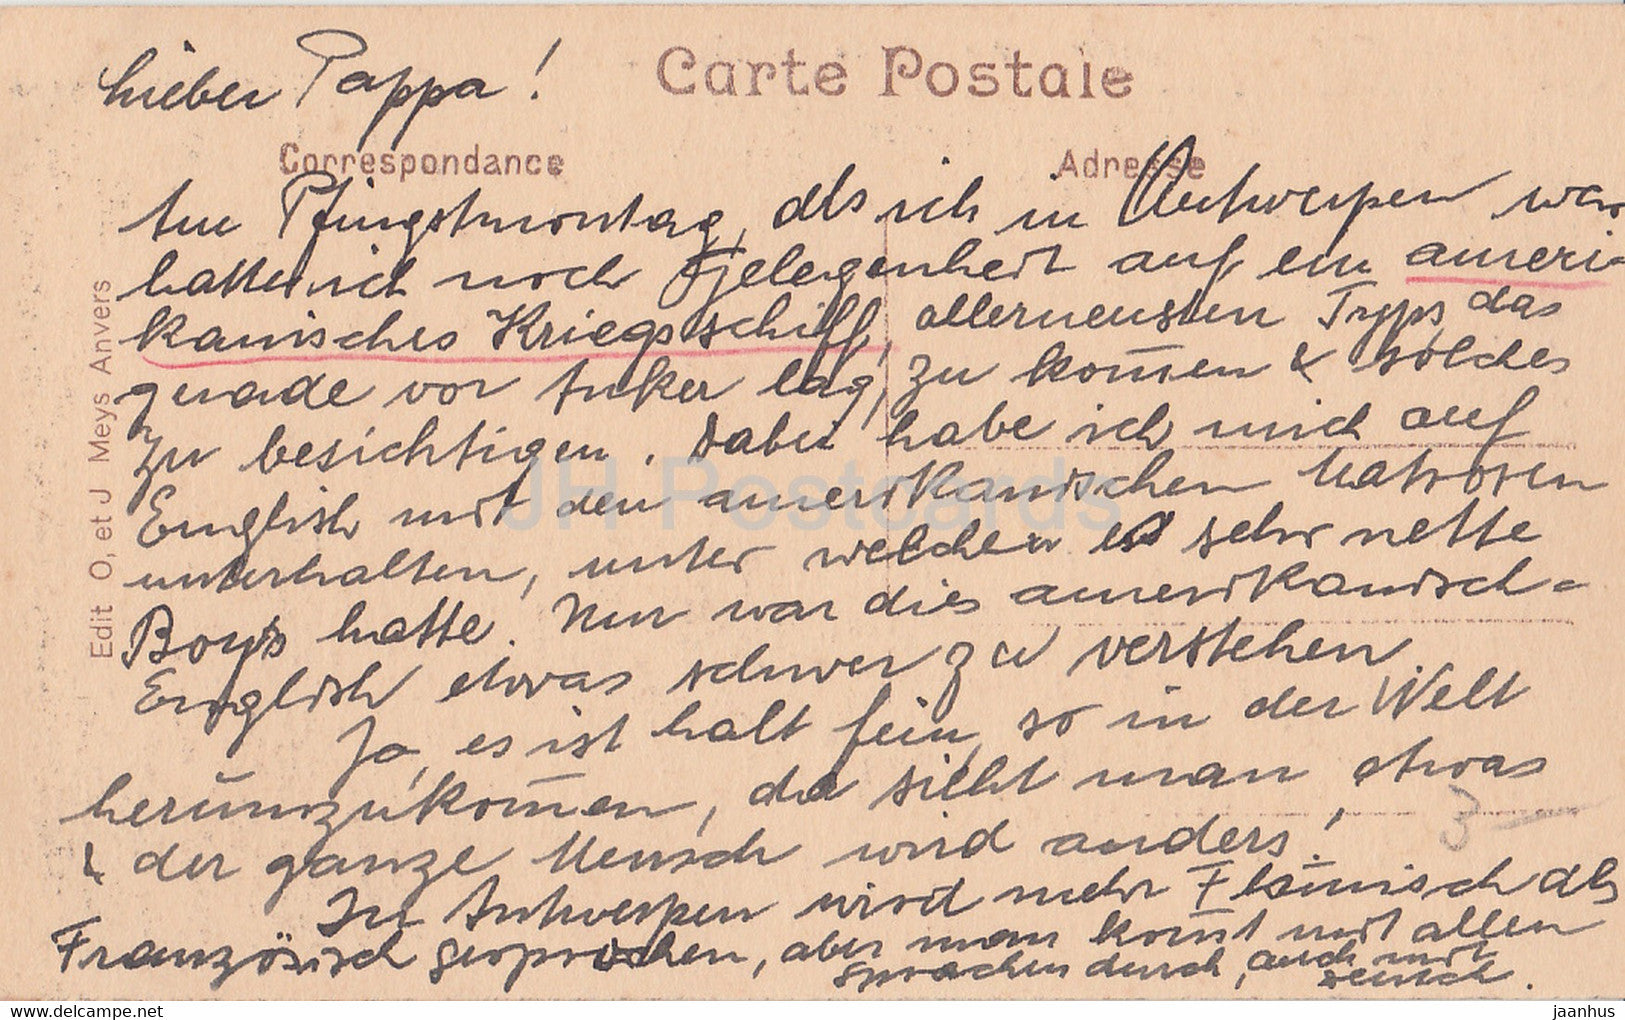 Lieber Pappa!
Carte Postale
Correspondance
Adresse
Am Pfingstmontag, als ich in Antwerpen war
hatte ich noch Gelegenheit auf ein ameri-
kanisches Kriegsschiff, allerneusten Typs, das
gerade vor Anker lag, zu kom̄en & solches
zu besichtigen. Dabei habe ich mich auf
English mit den amerikanischen Matrosen
unterhalten, unter welchen es sehr nette
Boys hatte. Nur war dies amerikanisch-
English etwas schwer zu verstehen.
Ja, es ist halt fein, so in der Welt
herumzukom̄en, da sieht man etwas
& der ganze Mensch wird anders!
In Antwerpen wird mehr Fläm̄isch als
Französisch gesprochen, aber man kom̄t mit allen
Sprachen durch, auch mit
Deutsch.
Edit O, et J Meys Anvers
3
JH Postcards
delcampe.net
jaanhus